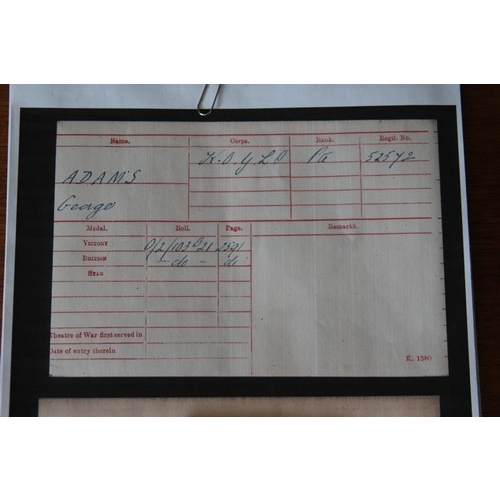 Name. Corps. Rank. Regtl. No.
K.O.Y.L.I Pte 52572
ADAMS
George
Medal. Roll. Page. Remarks.
VICTORY 2591
BRITISH - do - do
STAR
Theatre of War first served in
Date of entry therein
K. 1380